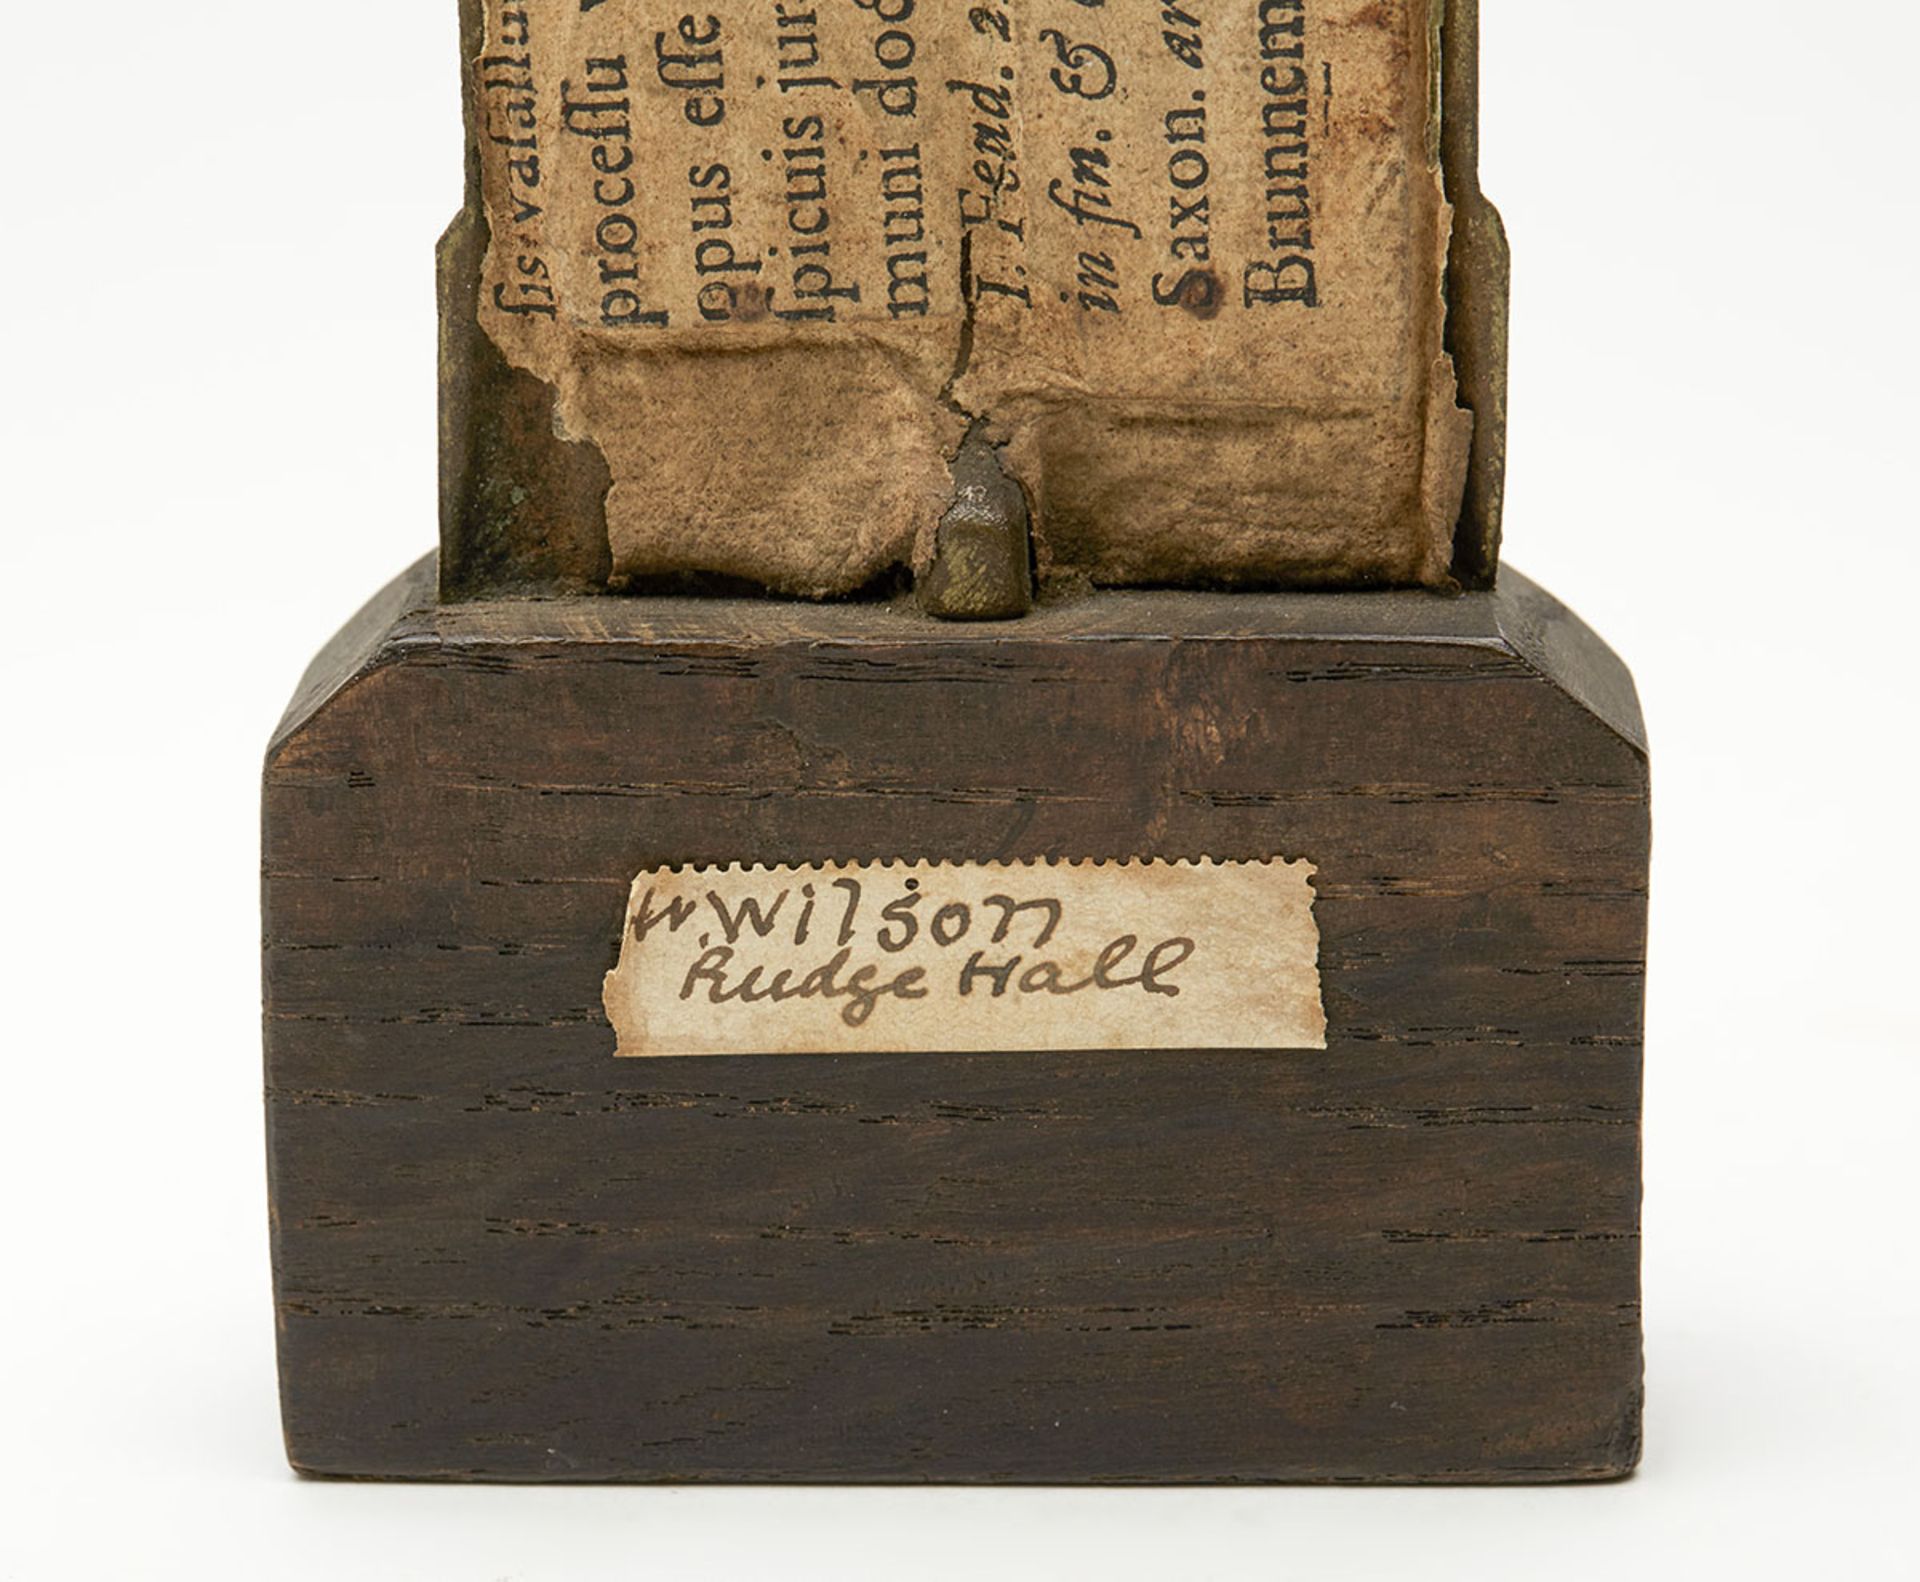 ſis vaſallu
proceſſu
opus eſſe
ſpicuis jur
muni dog
I. Feud. 2.
in fin. &
Saxon. ar
Brunnem
H. Wilson
Rudge Hall